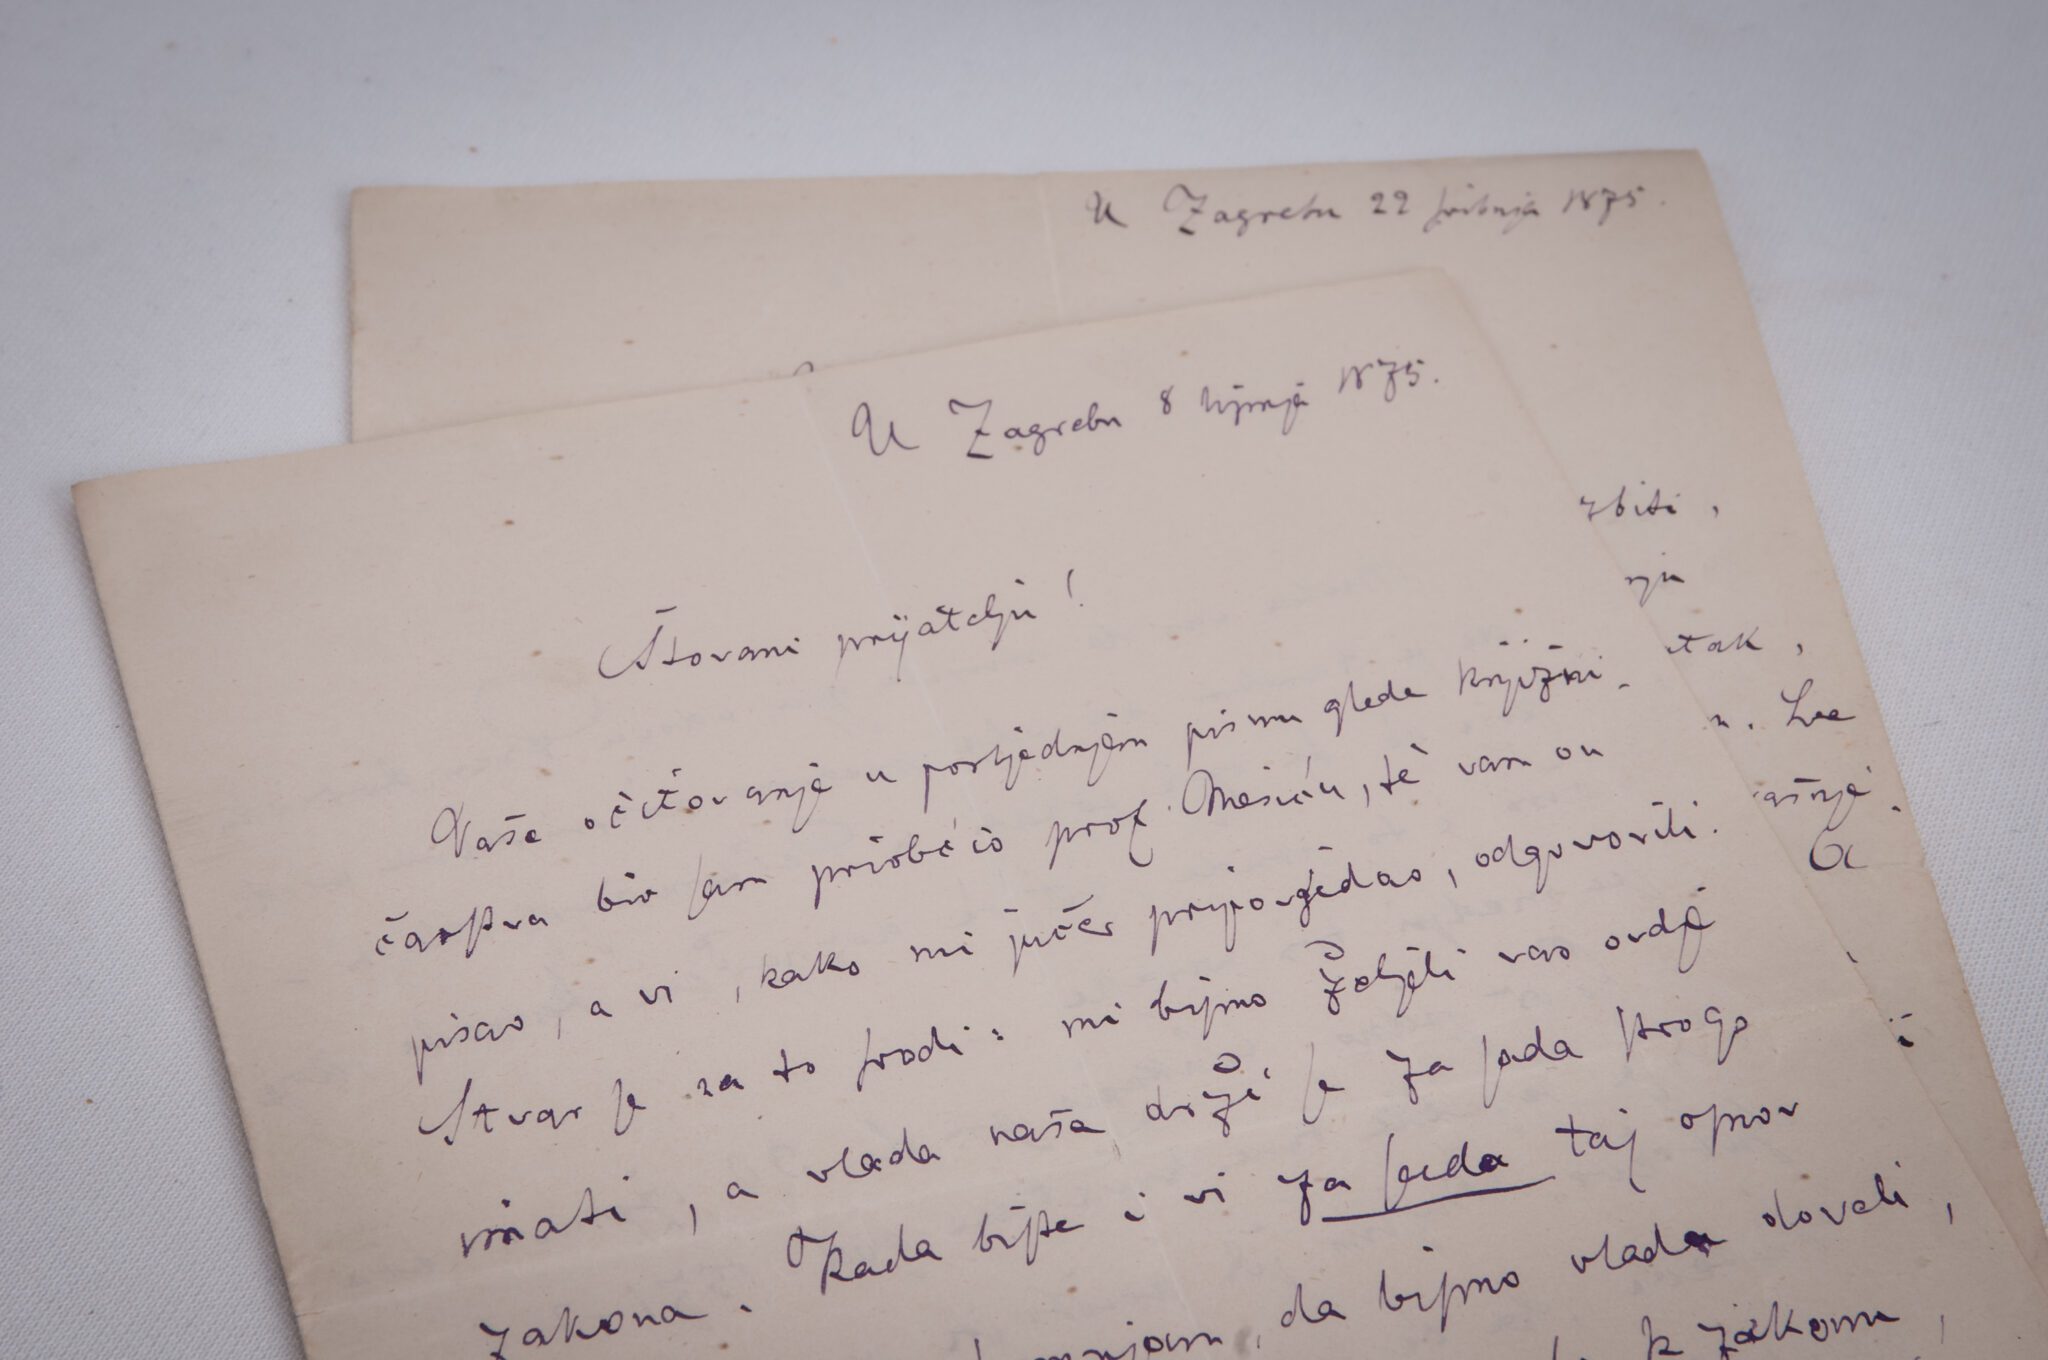 U Zagrebu 22 svibnja 1875.
U Zagrebu 8 lipnja 1875.
Štovani prijatelju!
Vaše očitovanje u posljednjem pismu glede knjižni-
čarstva bio sam priobćio prof. Mesiću, te vam on
pisao, a vi, kako mi jučer pripovjedao, odgovorili.
Stvar je za to srodi: mi bismo želјeli vas ovdje
imati, a vlada naša drži se za sada strogo
zakona. Kada biste i vi za sada taj opor
da bismo vladu doveli,
k zakonu,
zbiti,
nju
tak,
u. Sve
ašnje.